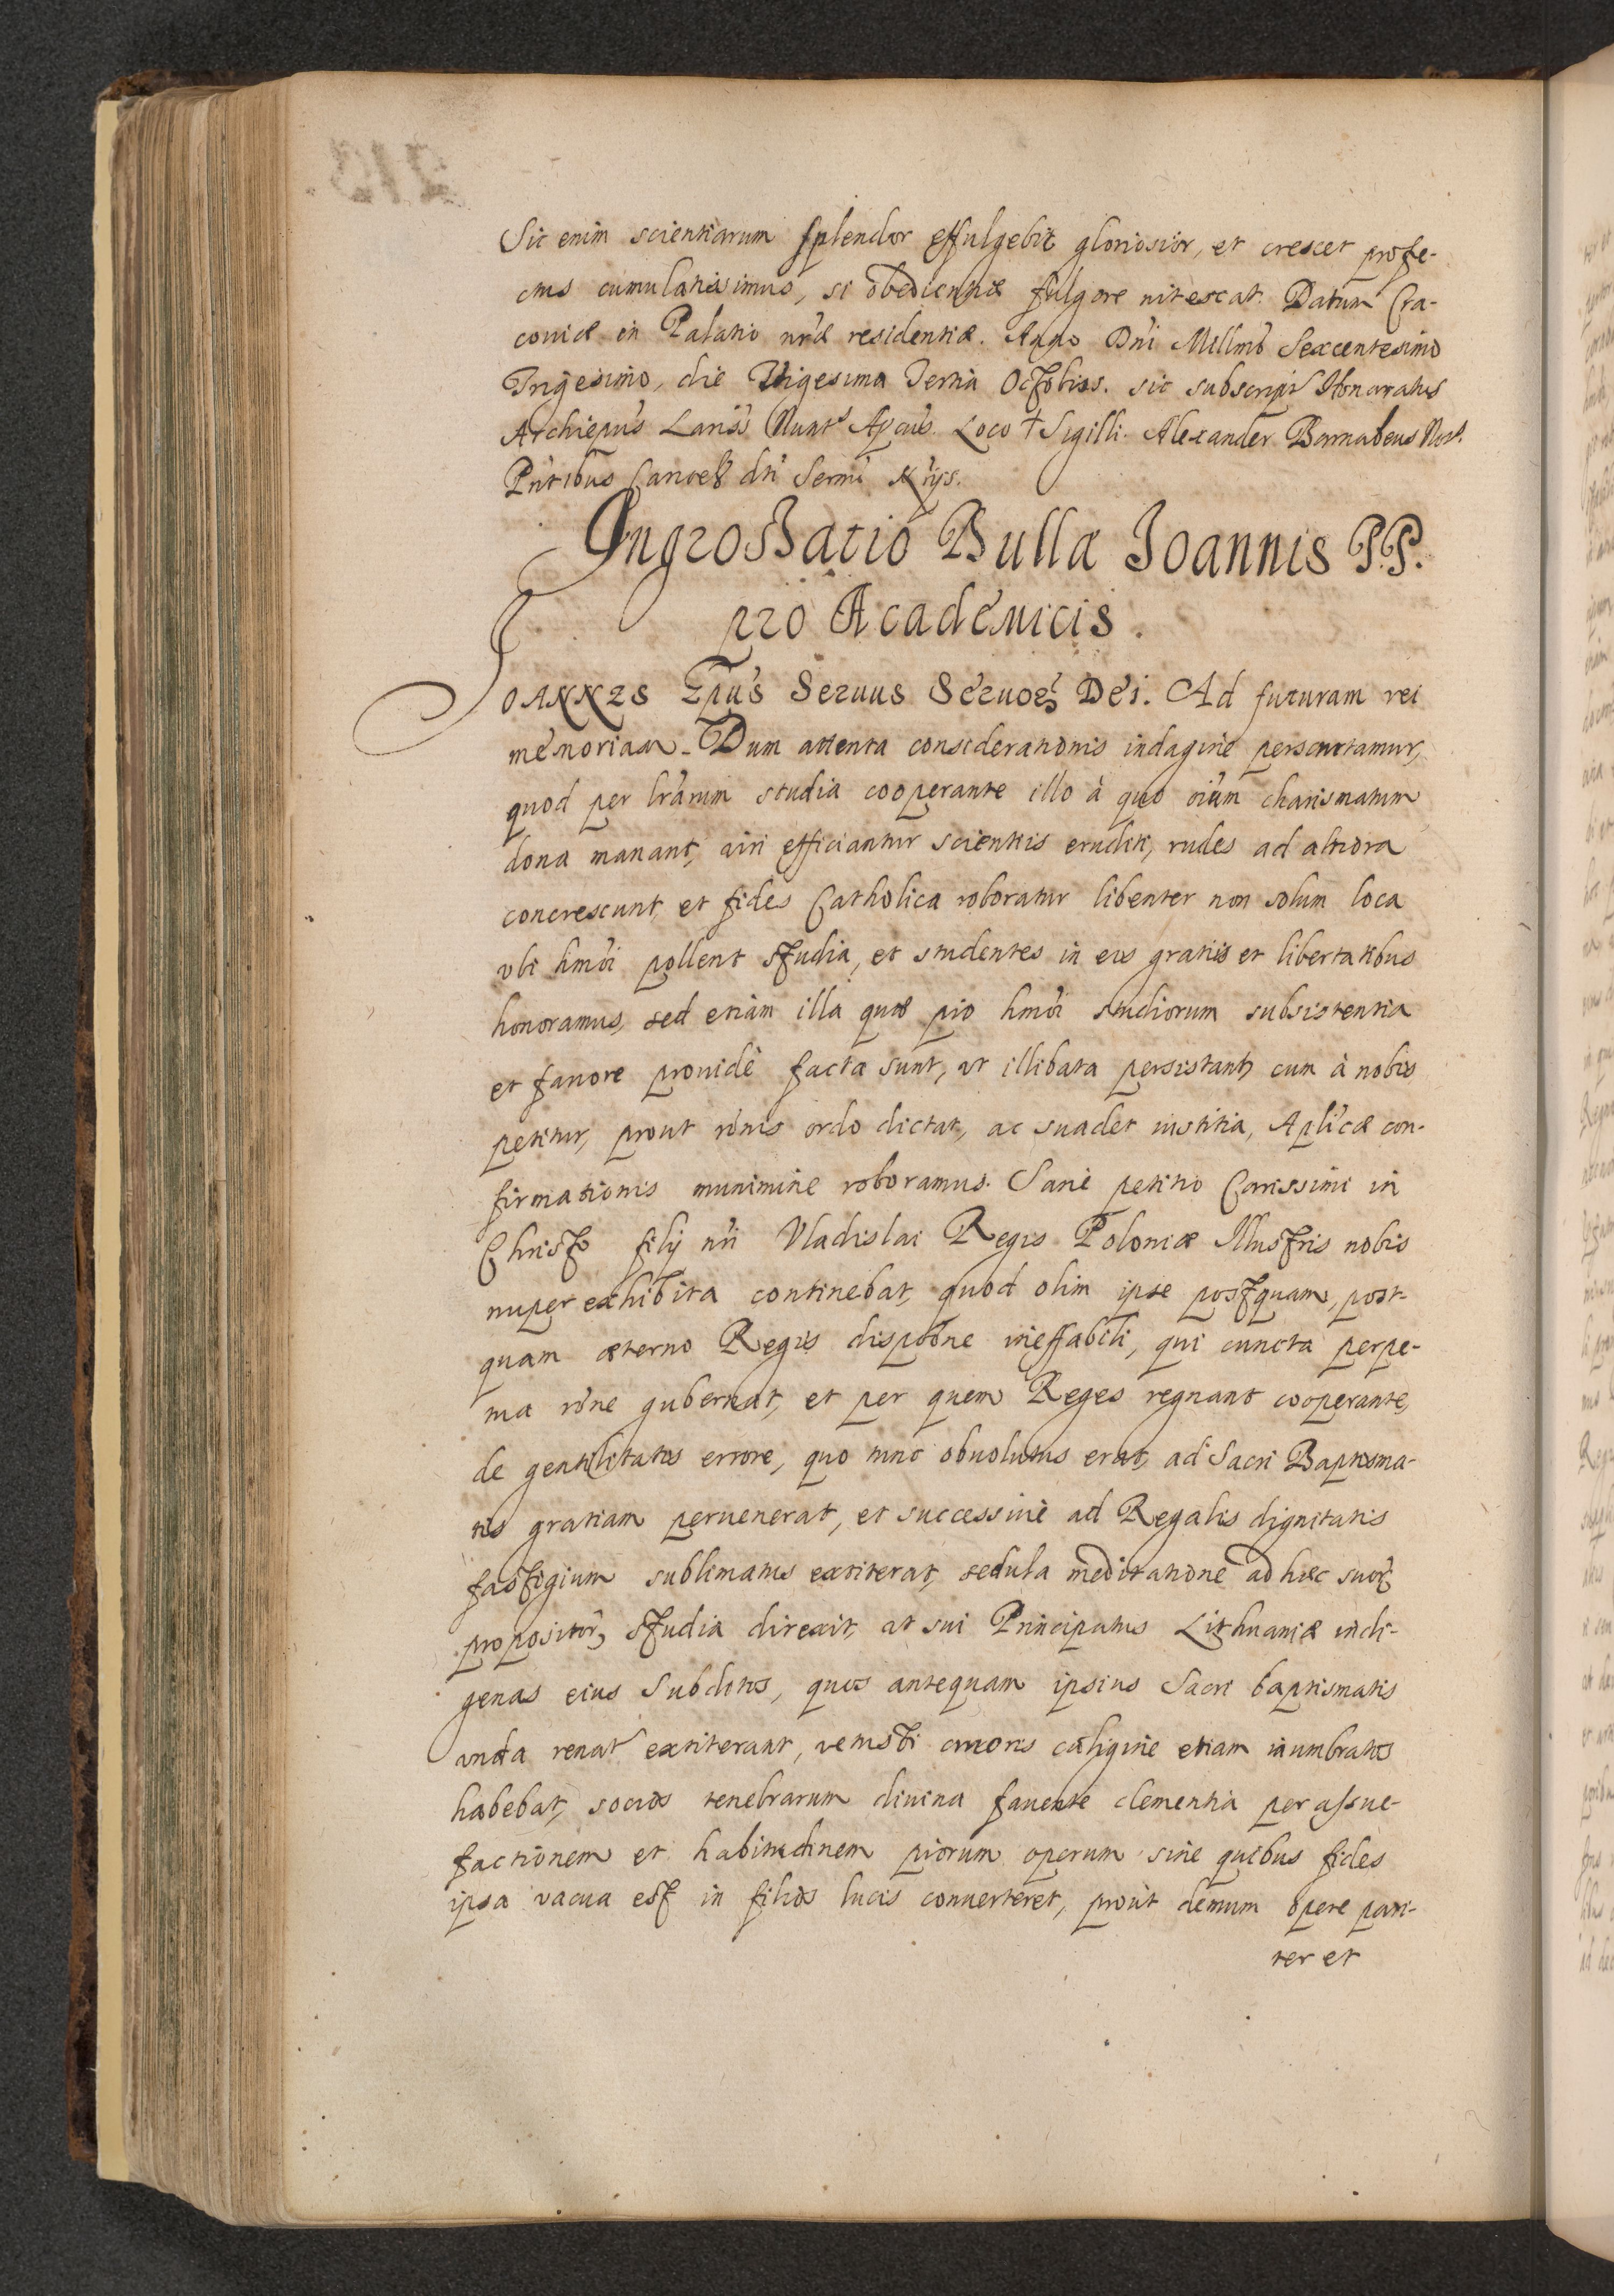 Sic enim scientiarum splendor effulgebit gloriosior, et crescet profe-
ctus cumulatissimus, si obedientiæ fulgore nitescat. Datum Cra-
couiæ in Palatio nr̃æ residentiæ. Anno Dn̄i Millmō Sexcentesimo
Trigesimo, die Vigesima Tertia Octobris. sic subscript Honoratus
Archiepūs Lariss Nunt Apcūs. Loco † Sigilli. Alexander Barnabeus Not.
Pn̄tibus Cancel dn̄i Sermi
Ingrossatio Bullæ Joannis P.P.
pro Academicis.
Joannes Ep̄us Seruus Seruoꝝ Dei. Ad futuram rei
memoriam. Dum attenta considerationis indagine perscrutamur,
quod per lr̄arum studia cooperante illo à quo oiūm charismatum
dona manant, uiri efficiantur scientiis eruditi, rudes ad altiora
concrescunt, et fides Catholica roboratur libenter non solum loca
vbi hmōi pollent studia, et studentes in eis gratiis et libertatibus
honoramus, sed etiam illa quæ pro hmōi studiorum subsistentia
et fauore prouidè facta sunt, ut illibata persistant, cum à nobis
petitur, prout rōnis ordo dictat, ac suadet iustitia, Aplīcæ con-
firmationis munimine roboramus. Sanè petitio Carissimi in
Christo filij nr̄i Vladislai Regis Poloniæ Illustris nobis
nuper exhibita continebat, quod olim ipse postquam, post-
quam æterno Regis dispōne ineffabili, qui cuncta perpe-
tua rōne gubernat, et per quem Reges regnant cooperante,
de gentilitatis errore, quo tunc obuolutus erat, ad Sacri Baptisma-
tis gratiam peruenerat, et successiuè ad Regalis dignitatis
fastigium sublimatus extiterat, sedula meditatione ad hæc suoꝝ
propositoꝝ studia direxit, ut sui Principatus Lithuaniæ indi-
genas eius Subditos, quos antequam ipsius Sacri baptismatis
unda renat extiterant, vetusti erroris caligine etiam inumbratos
habebat, socios tenebrarum diuina fauente clementia per assue-
factionem et habitudinem piorum operum sine quibus fides
ipsa vacua est in filios lucis conuerteret, prout demum opere pari-
ter et